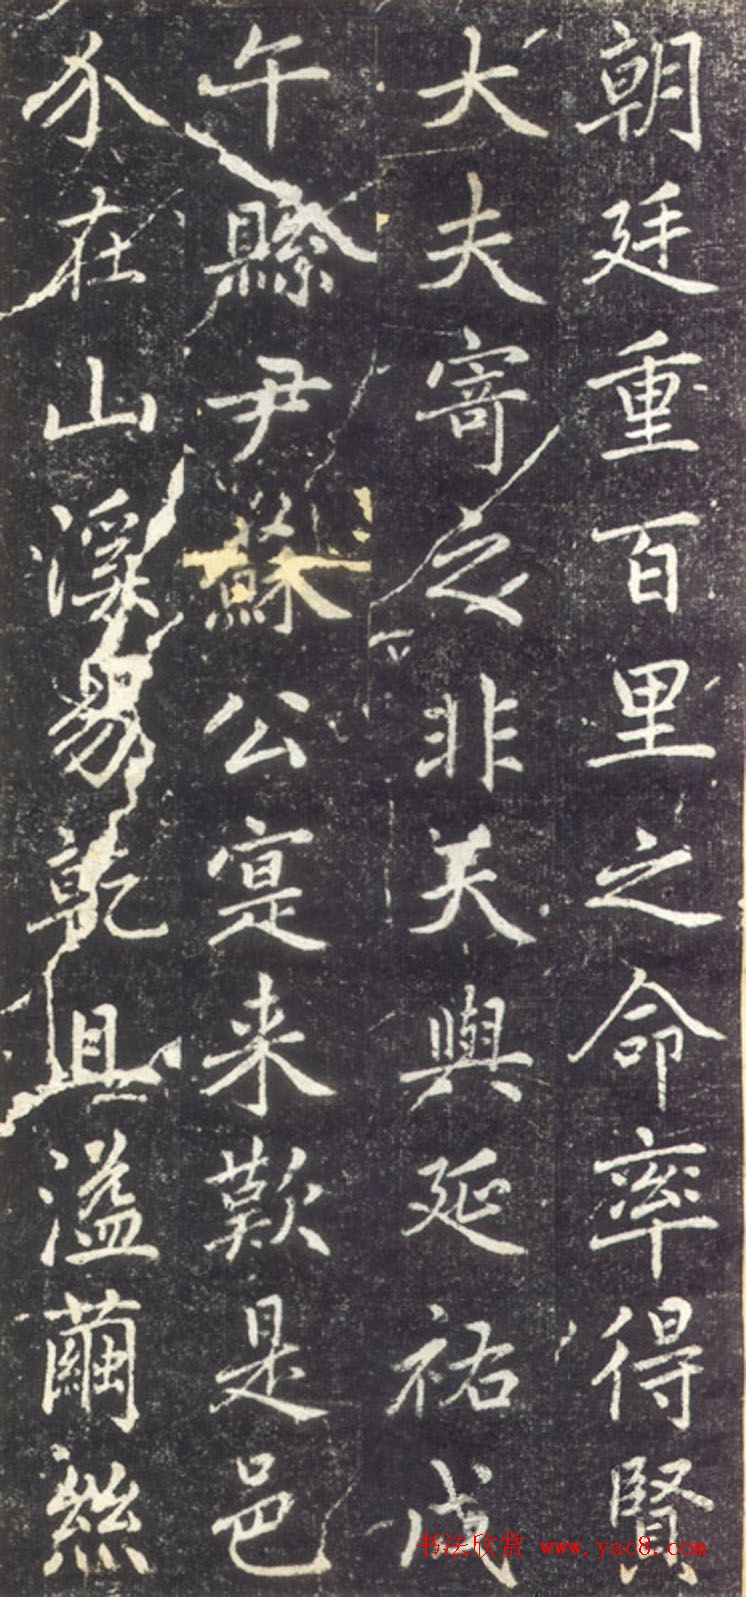 朝廷重百里之命率得賢
大夫寄之非关與延祐戊
午縣尹蘇公寔来歎是邑
介在山溪易乾且溢繭絲
书法欣赏 www.yac8.com